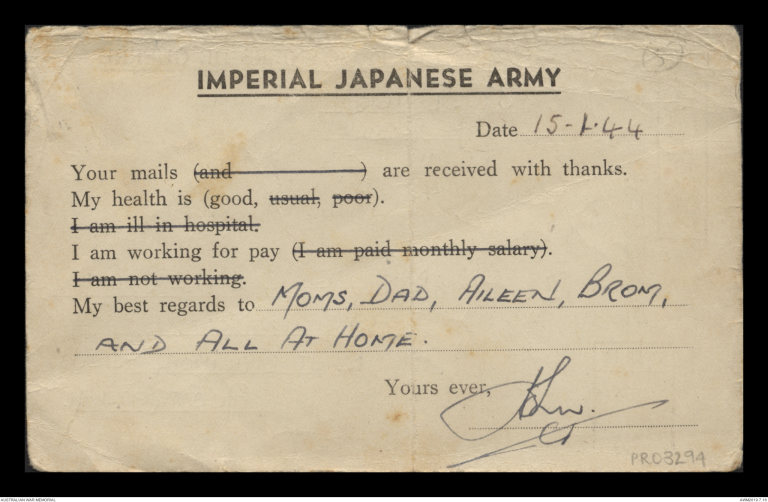 (5)
IMPERIAL JAPANESE ARMY
Date 15-1-44
Your mails (and ) are received with thanks.
My health is (good, usual, poor).
I am ill in hospital.
I am working for pay (I am paid monthly salary).
I am not working.
My best regards to MOMS, DAD, AILEEN, BROM,
AND ALL AT HOME.
Yours ever,
PR03294
AUSTRALIAN WAR MEMORIAL